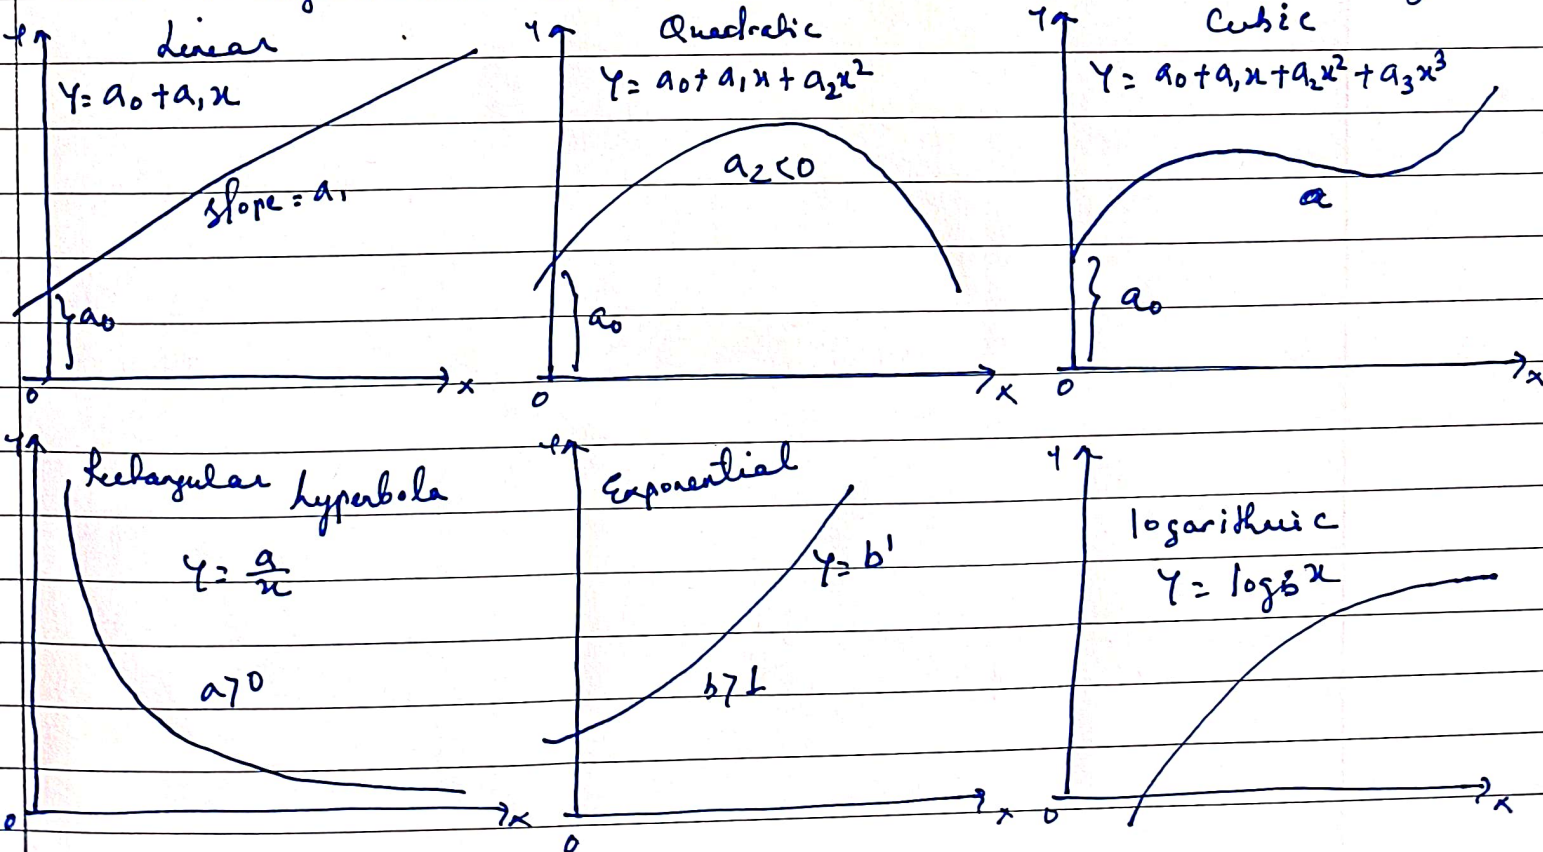 Y Linear
Y = a₀ + a₁x
slope = a₁
a₀
0 x
Y Quadratic
Y = a₀ + a₁x + a₂x²
a₂<0
a₀
0 x
Y Cubic
Y = a₀ + a₁x + a₂x² + a₃x³
a
a₀
0 x
Y Rectangular hyperbola
Y = a/x
a>0
0 x
Y Exponential
Y = b'
b>1
0 x
Y
logarithmic
Y = log_b x
0 x